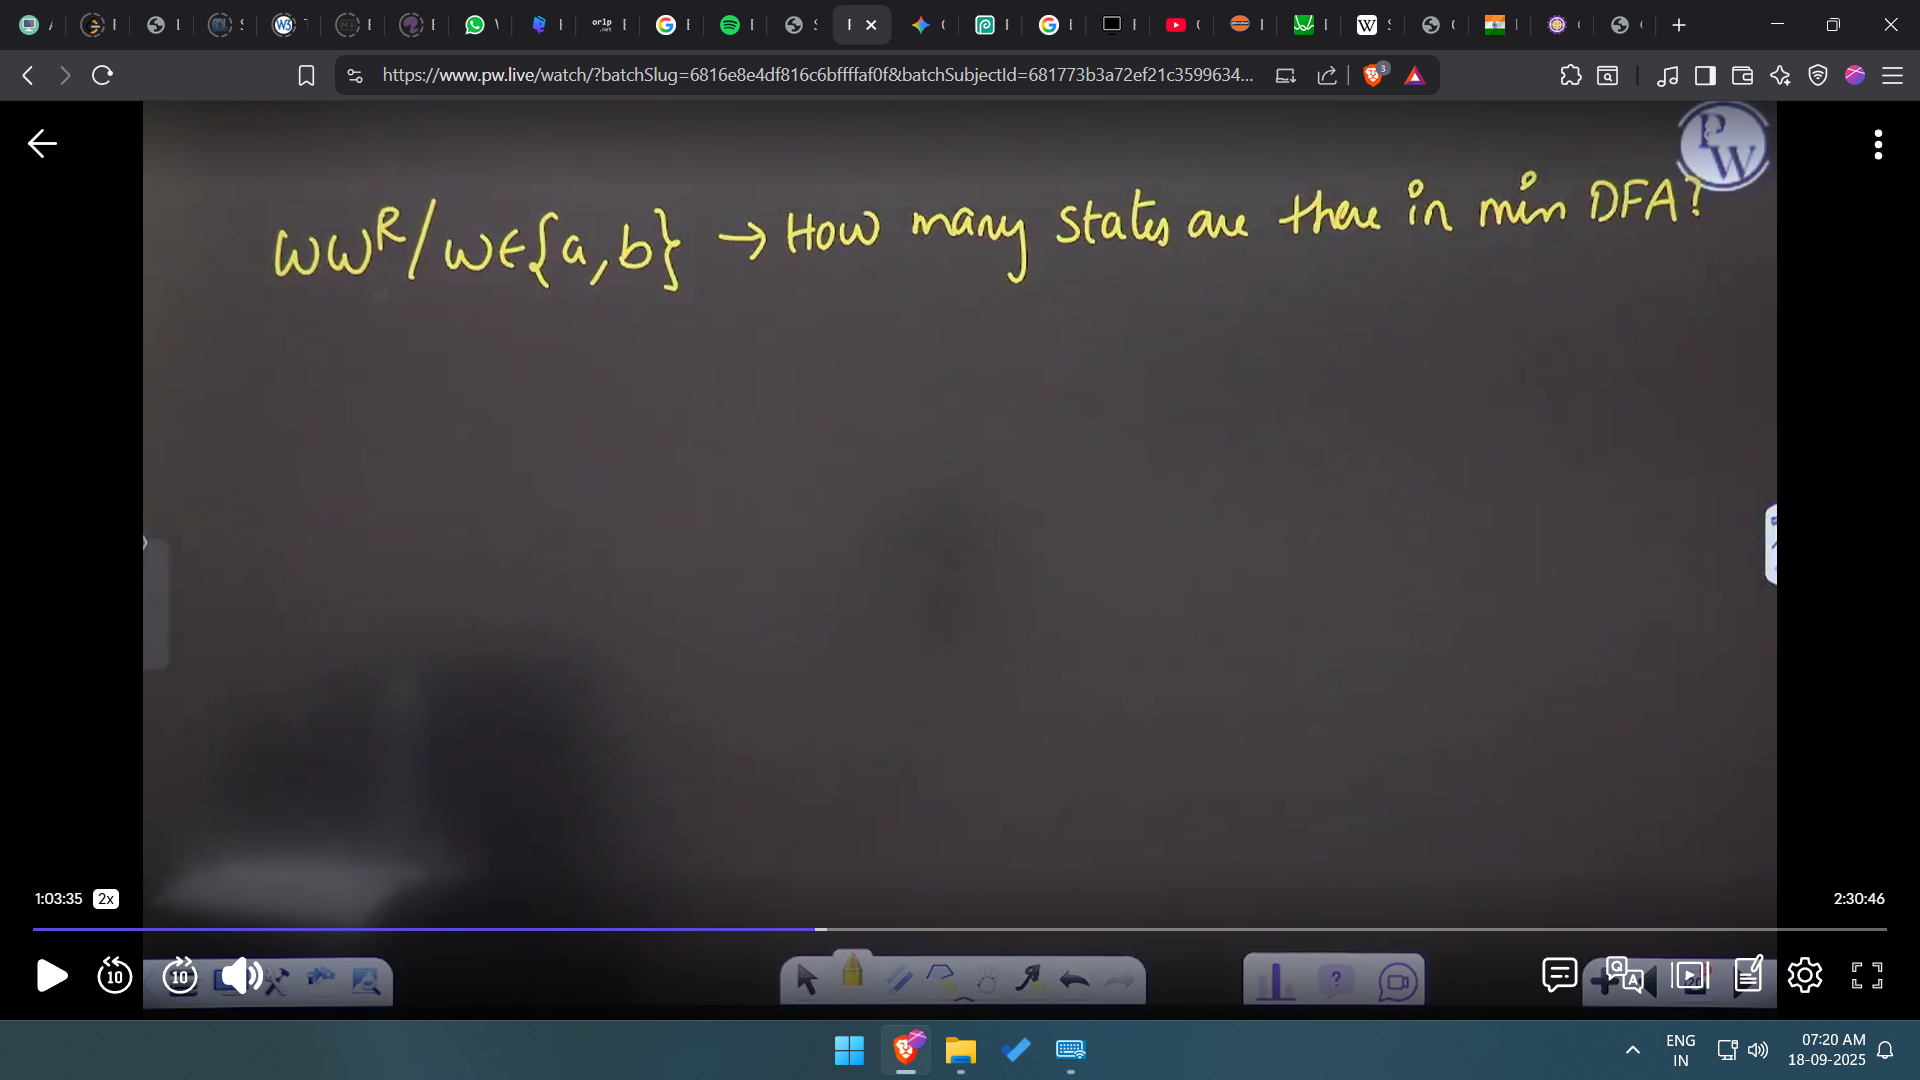 https://www.pw.live/watch/?batchSlug=6816e8e4df816c6bffffaf0f&batchSubjectId=681773b3a72ef21c3599634...
3
PW
WW^R/W∈{a,b} → How many states are there in min DFA?
1:03:35 2x
2:30:46
10 10
Q A
ENG
IN
07:20 AM
18-09-2025